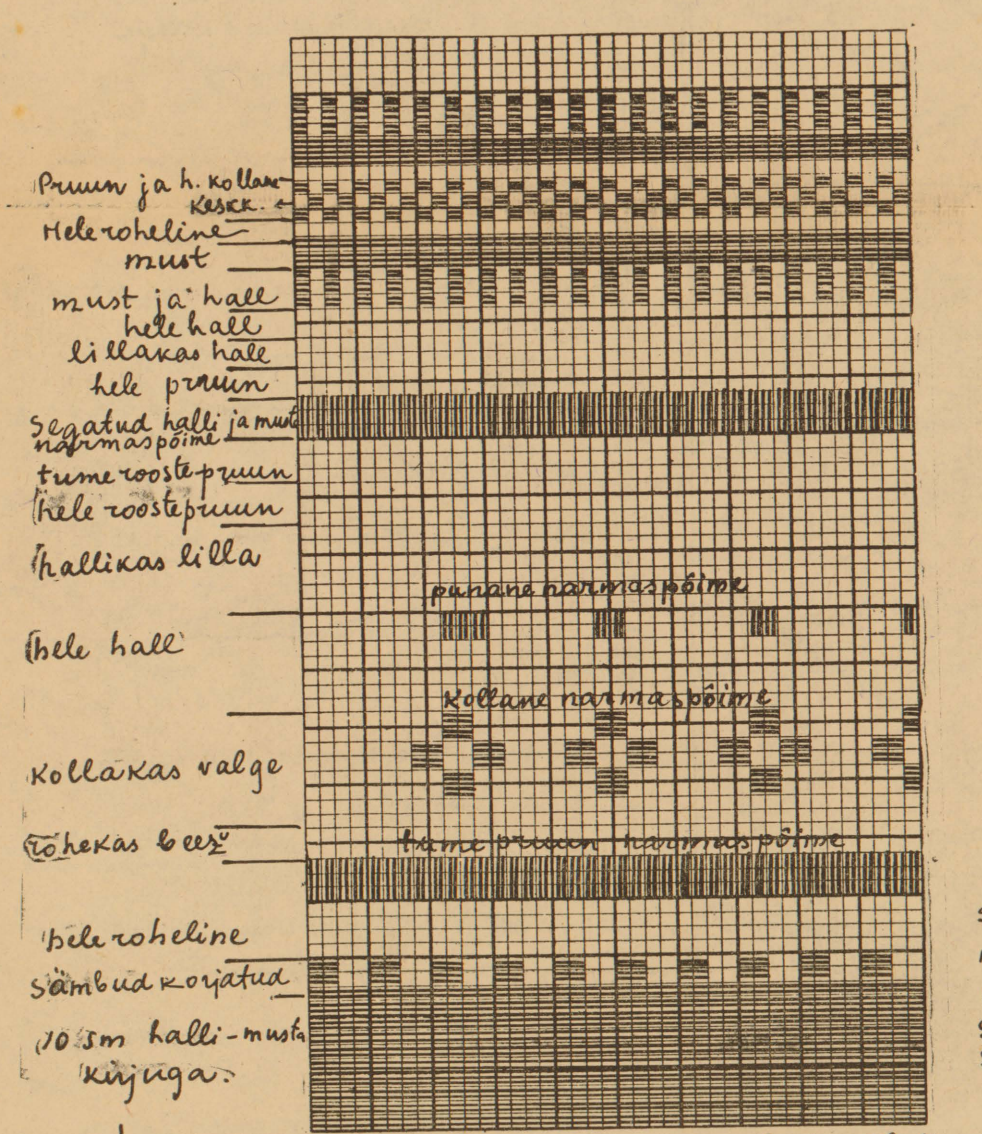 Pruun ja h. kollane
Keskk.
Heleroheline
must
must ja hall
hele hall
lillakas hall
hele pruun
Segatud halli ja musta
narmaspõime
tume roostepruun
hele roostepruun
hallikas lilla
punane narmaspõime
hele hall
kollane narmaspõime
kollakas valge
rohekas beež
tume pruun narmaspõime
heleroheline
sämbud korjatud
10 sm halli-musta
kirjuga.